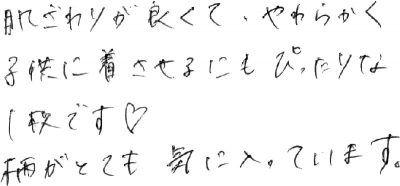 肌ざわりが良くて、やわらかく
子供に着させるにもぴったりな
1枚です♡
柄がとても気に入っています。